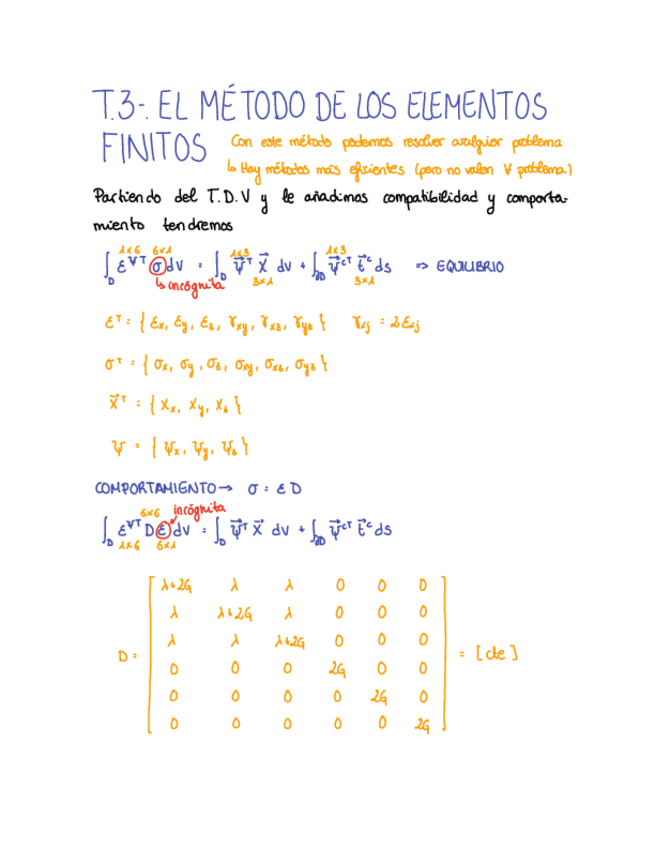 T.3-. EL MÉTODO DE LOS ELEMENTOS
FINITOS
Con este método podemos resolver cualquier problema
↳ Hay métodos más eficientes (pero no valen ∀ problema)
Partiendo del T.D.V y le añadimos compatibilidad y comporta-
miento tendremos
1x6 6x1 1x3 1x3
∫_D ε^ΨT σ dv = ∫_D ψ⃗^T X⃗ dv + ∫_∂D ψ⃗^cT t⃗^c ds ⇒ EQUILIBRIO
↳ incógnita 3x1 3x1
ε^T = { εx, εy, εz, γxy, γxz, γyz } γij = 2εij
σ^T = { σx, σy, σz, σxy, σxz, σyz }
X⃗^T = { Xx, Xy, Xz }
ψ = { ψx, ψy, ψz }
COMPORTAMIENTO → σ = ε D
6x6 incógnita
∫_D ε^ΨT D ε dv = ∫_D ψ⃗^T X⃗ dv + ∫_∂D ψ⃗^cT t⃗^c ds
1x6 6x1
λ+2G λ λ 0 0 0
λ λ+2G λ 0 0 0
λ λ λ+2G 0 0 0
D = 0 0 0 2G 0 0 = [cte]
0 0 0 0 2G 0
0 0 0 0 0 2G